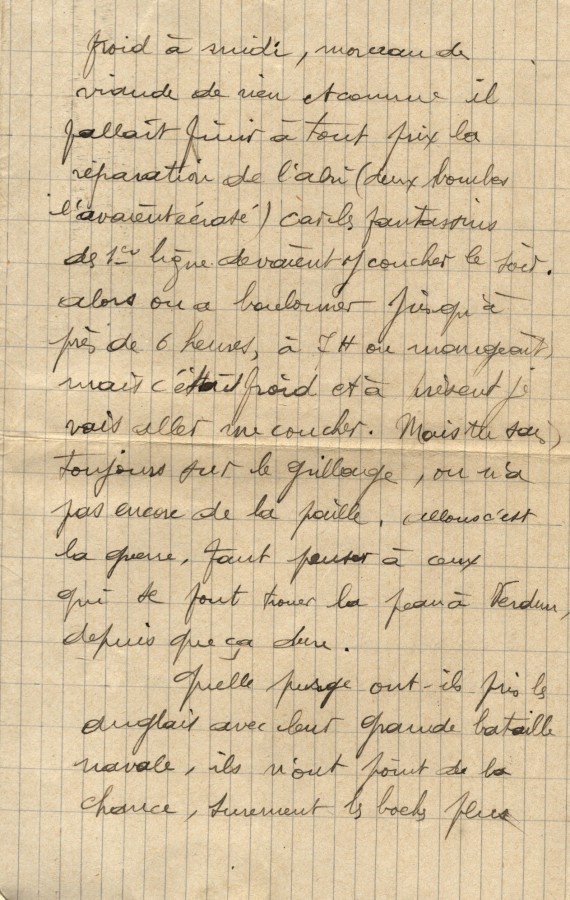 froid à midi, morceau de
viande de rien et comme il
fallait finir à tout prix la
réparation de l'abri (deux bombes
l'avaient écrasé) car les fantassins
de 1ère ligne devaient y coucher le soir.
alors on a boulonner jusqu'à
près de 6 heures, à 7H on mangeait,
mais c'était froid et à présent je
vais aller me coucher. Mais tu sais,
toujours sur le grillage, on n'a
pas encore de la paille. allons c'est
la guerre, faut penser à ceux
qui se font trouer la peau à Verdun,
depuis que ça dure.
Quelle purge ont-ils pris les
anglais avec leur grande bataille
navale, ils n'ont point de la
chance, surement les bochs plus